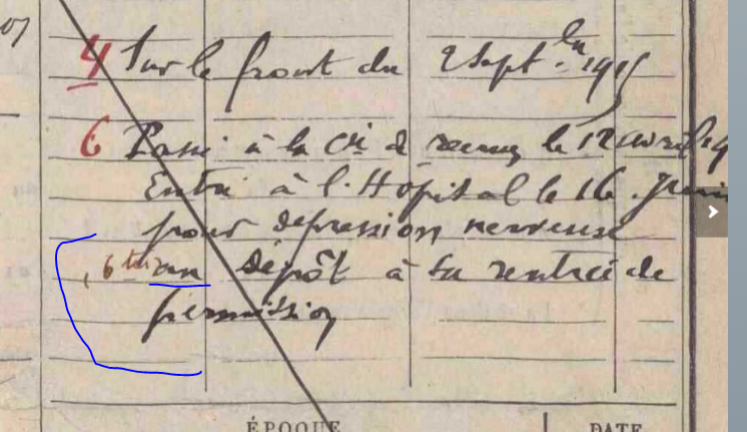 07
4 Sur le front du 2 Sept. 1915
6 Passé à la Cie de le 12 avril 19
Entré à l'Hôpital le 16 Juin
pour dépression nerveuse
6 au dépôt à sa rentrée de
permission
ÉPOQUE DATE